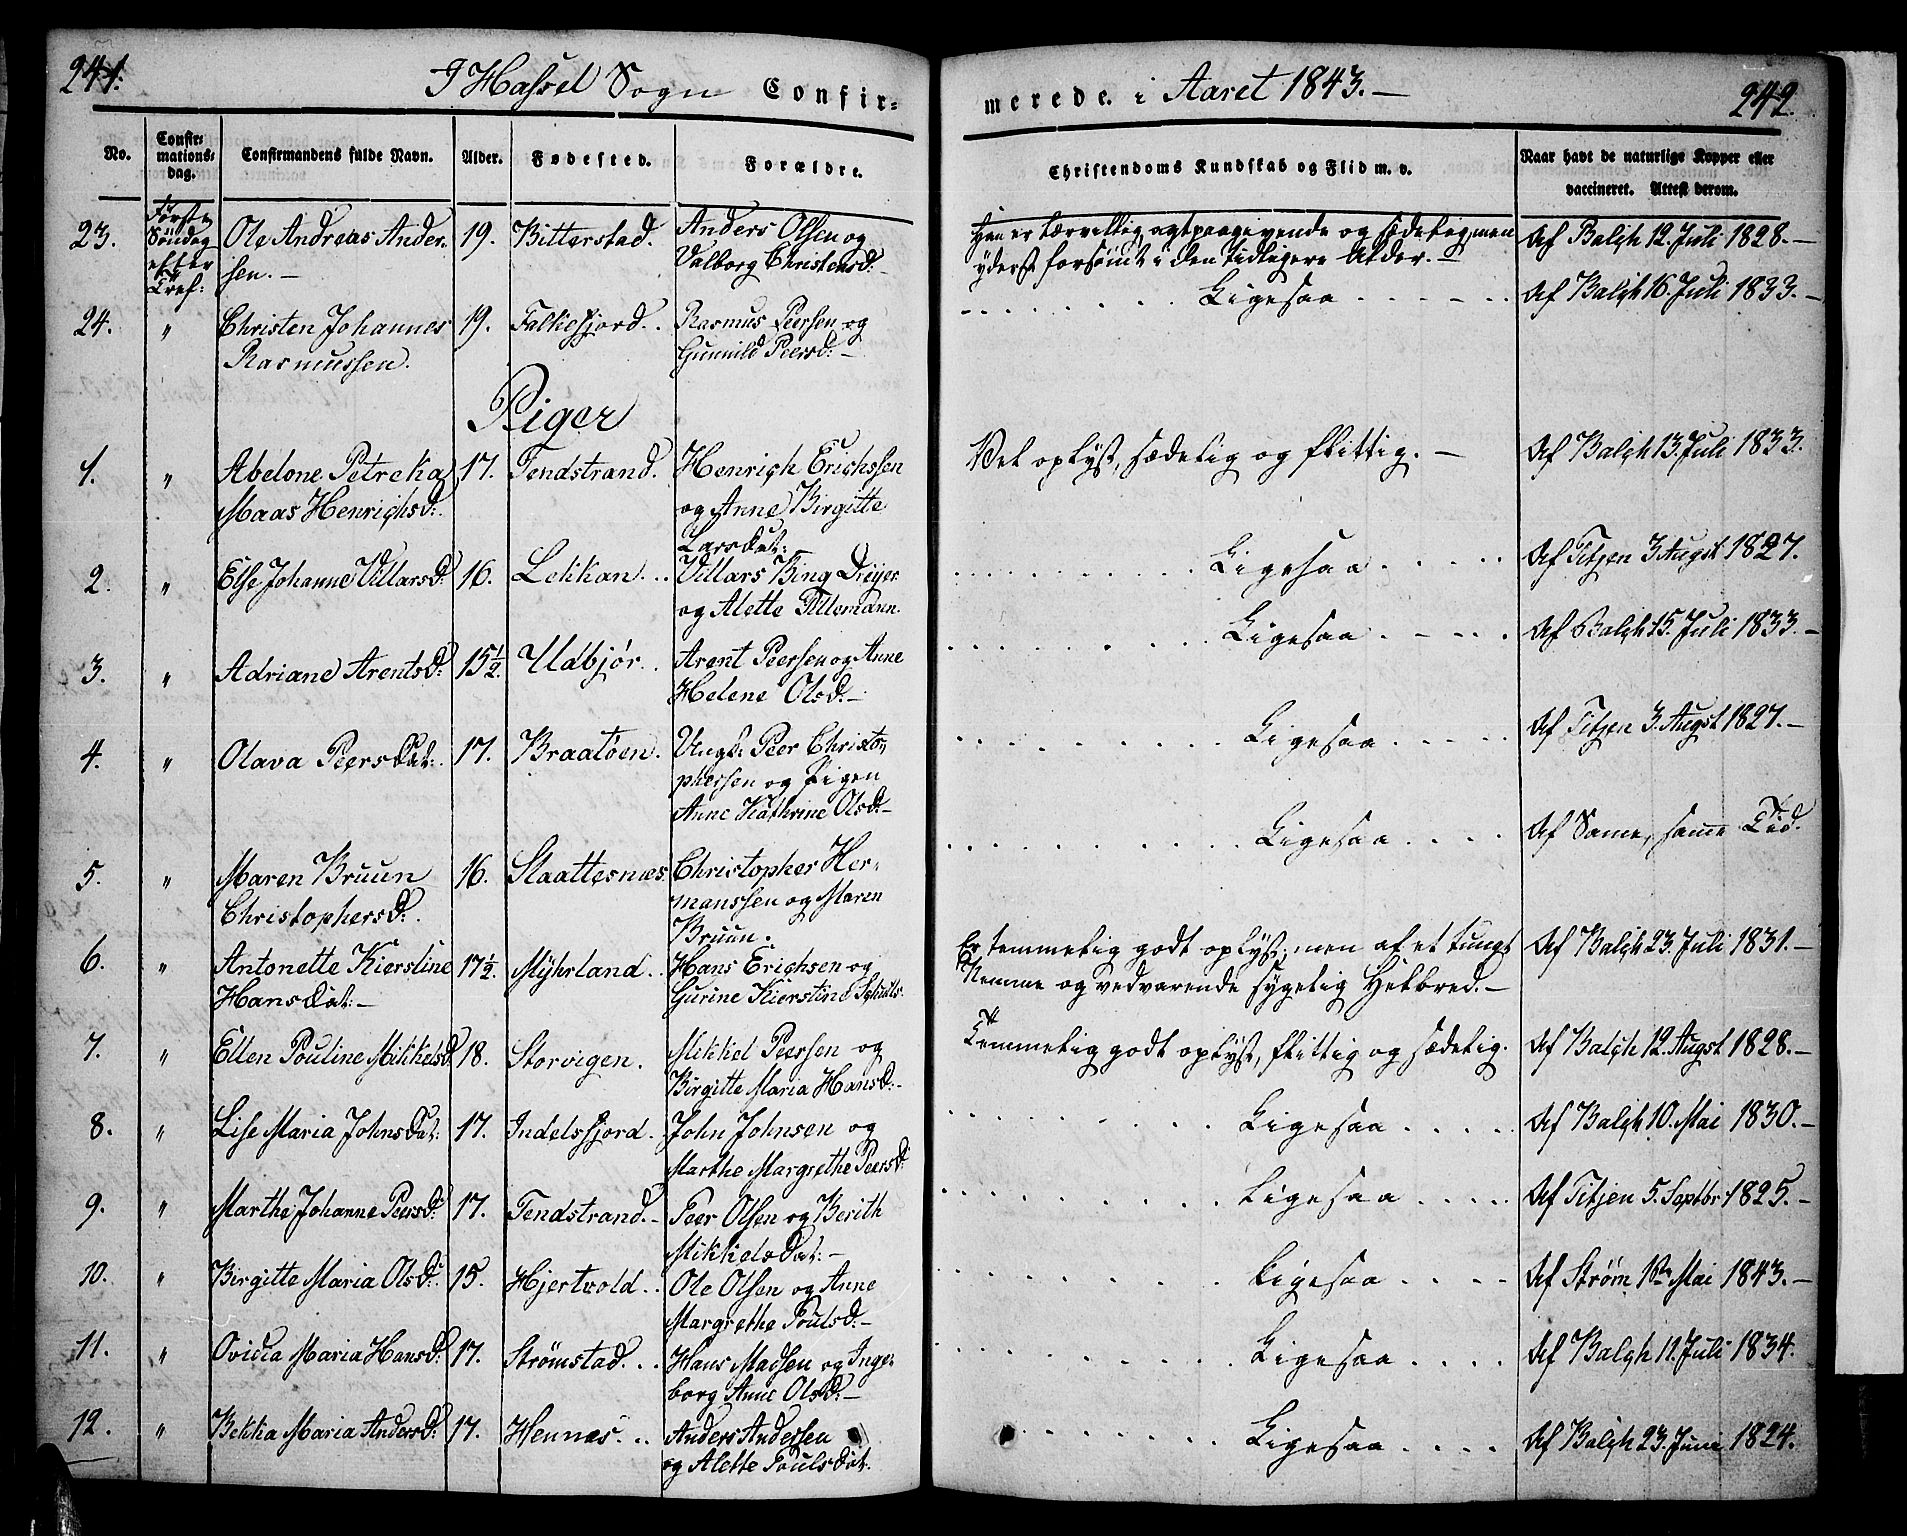 241.
I Hassel Sogn Confir-
merede i Aaret 1843.-
242.
No.
Confir-
mations-
dag.
Confirmandens fulde Navn.
Alder.
Fødested.
Forældre.
Christendoms Kundskab og Flid m. v.
Naar havt de naturlige Kopper eller
vaccineret. Attest derom.
23. Første Søndag efter Tref: Ole Andreas Ander- 19. Bitterstad. Anders Olsen og
sen.- Valborg Christensd:-
Han er tarvellig, agtpaagivende og sædelig, men
yderst forsømt i den tidligere Alder.-
Af Balch 12. Juli 1828.-
24. " Christen Johannes 19. Falkefjord.. Rasmus Peersen og
Rasmussen. Gunnild Peersd:-
Ligesaa Af Balch 16. Juli 1833.-
Piger
1. " Abelone Petreka 17. Tendstrand. Henrich Erichssen
Maas Henrichsd:. og Anne Birgitte
Larsdat:
Vel oplyst, sædelig og flittig.- Af Balch 13. Juli 1833.
2. " Else Johanne Villarsd: 16. Lekkan... Villars Bing Dreyer
og Alette Tillemann.
Ligesaa Af Titjen 3. Augst 1827.
3. " Adriane Arentsd: 15½. Udbjør... Arent Peersen og Anne
Helene Olsd:-
Ligesaa Af Balch 15. Juli 1833.-
4. " Olava Peersdat:. 17. Braatøen. Ungk: Peer Christo-
phersen og Pigen
Anne Kathrine Olsd:-
Ligesaa Af Titjen 3. Augst 1827.-
5. " Maren Bruun 16. Slaattesnæs. Christopher Her-
Christophersd:. manssen og Maren
Bruun.
Ligesaa Af Same, same Tid.
6. " Antonette Kierstine 17½. Myhrland.. Hans Erichsen og
Hansdat:- Gurine Kierstine
Er temmelig godt oplyst; men af et tungt
Nemme og vedvarende sygelig Helbred.-
Af Balch 23. Juli 1831.-
7. " Ellen Pouline Mikkelsd: 18. Storvigen. Mikkel Peersen og
Birgitte Maria Hansd:-
Temmelig godt oplyst, flittig og sædelig. Af Balch 12. Augst 1828.-
8. " Lise Maria Johnsdat: 17. Indelsfjord. John Johnsen og
Marthe Margrethe Peersd:
Ligesaa Af Balch 10. Mai 1830.-
9. " Marthe Johanne Peersd: 17. Tendstrand.- Peer Olsen og Berith
Mikkelsdat:-
Ligesaa Af Titjen 5. Septbr 1825.-
10. " Birgitte Maria Olsd:. 15. Hjertvold.. Ole Olsen og Anne
Margrethe Poulsd:-
Ligesaa Af Strøm, Mai 1843.-
11. " Ovidia Maria Hansd: 17. Strømstad... Hans Madsen og Inge-
borg Anne Olsd:-
Ligesaa Af Balch 11. Juli 1834.
12. " Bekka Maria Andersd: 17. Hennæs... Anders Andersen
og Alette Poulsdat.
Ligesaa Af Balch 23. Juni 1824.